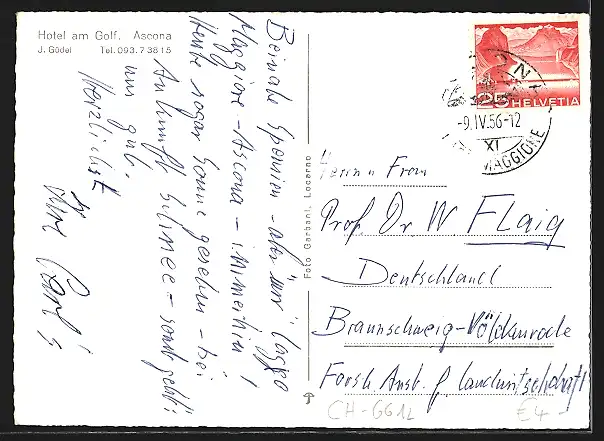 Hotel am Golf. Ascona
J. Gödel Tel. 093.7 38 15
Beinahe Spanien - aber "nur" Lago
Maggiore - Ascona - immerhin!
Heute sogar Sonne gesehn - bei
Ankunft Schnee - sonst geht's
uns gut.
Herzlichst
Foto Garbani, Locarno
HELVETIA
25
-9.IV.56-12
XI
MAGGIORE
Herrn u Frau
Prof. Dr W FLAIG
Deutschland
Braunschweig-Völkenrode
Forsch. Anst. f Landwirtschaft
CH-GG12
€4-